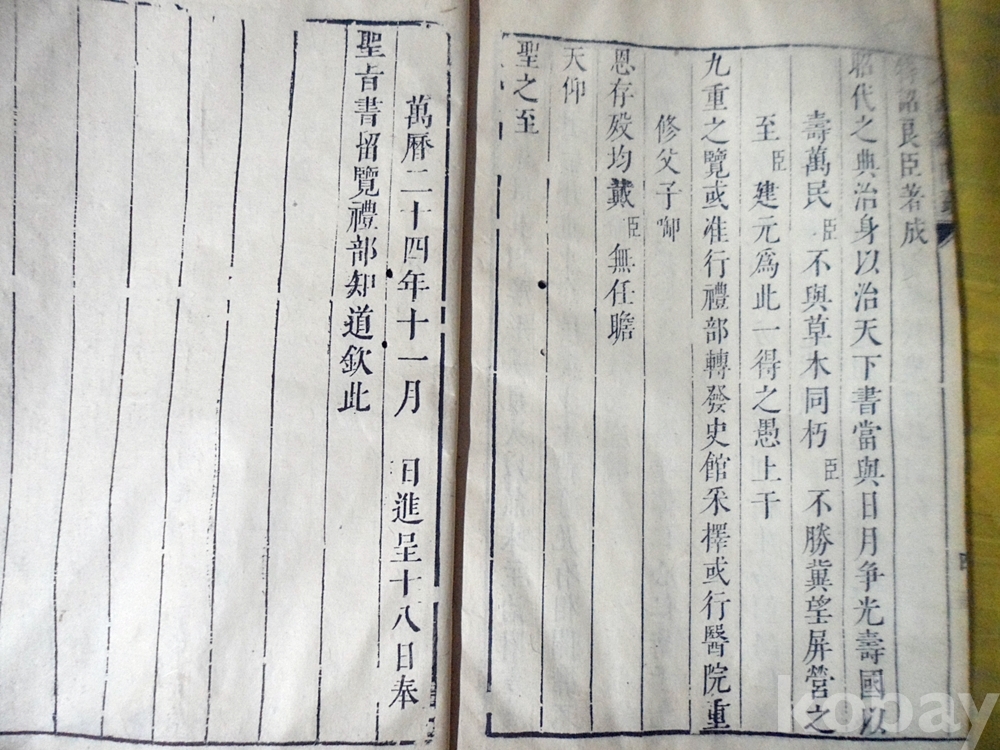 特詔良臣著成
昭代之典治身以治天下書當與日月争光壽國以
壽萬民臣不與草木同朽臣不勝冀望屏營之
至臣建元爲此一得之愚上干
九重之覽或准行禮部轉發史館采擇或行醫院重
修父子啣
恩存殁均戴臣無任瞻
天仰
聖之至
萬曆二十四年十一月 日進呈十八日奉
聖旨書留覽禮部知道欽此
kobay